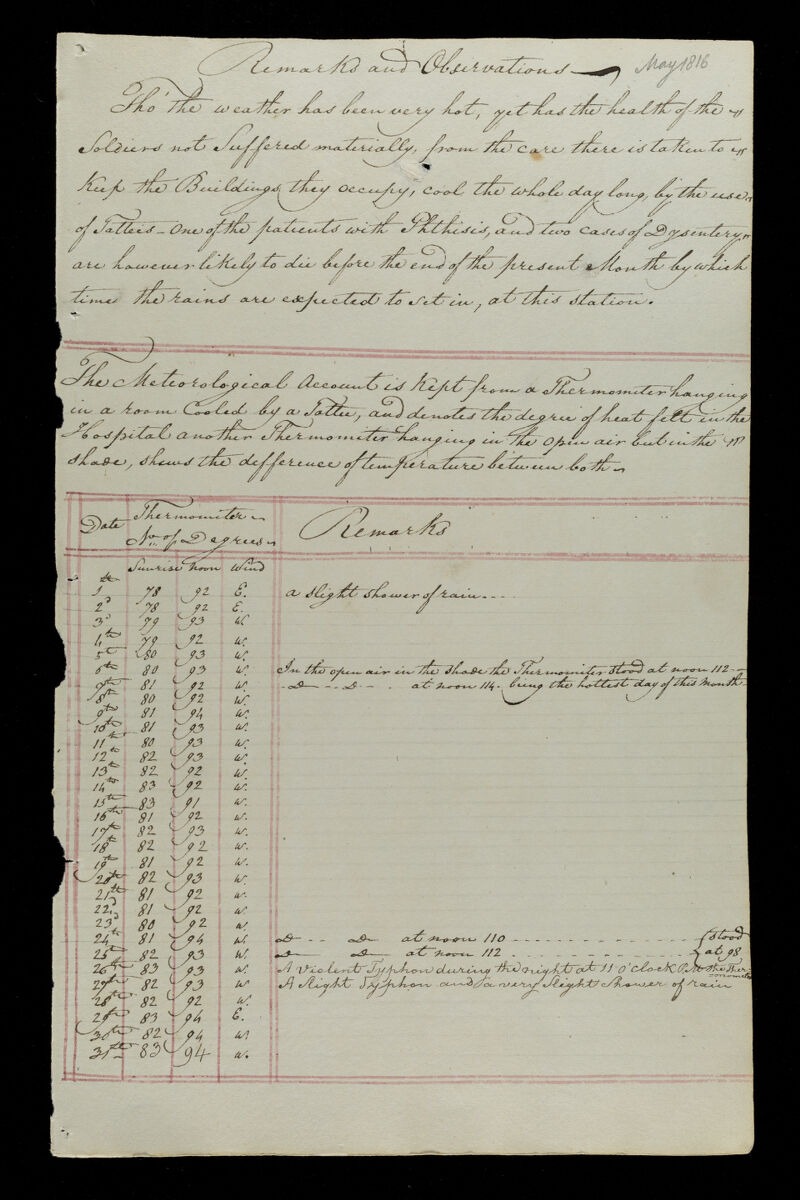 Remarks and Observations May 1816
Tho' the weather has been very hot, yet has the health of the
Soldiers not Suffered materially, from the care there is taken to
Keep the Buildings they occupy, cool the whole day long, by the use
of Tatties - One of the patients with Phthisis, and two cases of Dysentery
are however likely to die before the end of the present Month by which
time the rains are expected to set in, at this station.
The Meteorological Account is Kept from a Thermometer hanging
in a room Cooled by a Tattie, and denotes the degree of heat felt in the
Hospital another Thermometer hanging in the open air but in the
shade, shews the difference of temperature between both
Date Thermometer Remarks
No. of Degrees
Sunrise Noon Wind
1st 78 92 E. a slight shower of rain...
2d 78 92 E.
3d 79 93 W.
4th 79 92 W.
5th 80 93 W.
6th 80 93 W. In the open air in the shade the Thermometer stood at noon 112
7th 81 92 W. -D- - - D- - . at noon 114. being the hottest day of this Month
8th 80 92 W.
9th 81 94 W.
10th 81 93 W.
11th 80 93 W.
12th 82 93 W.
13th 82 92 W.
14th 83 92 W.
15th 83 91 W.
16th 81 92 W.
17th 82 93 W.
18th 82 92 W.
19th 81 92 W.
20th 82 93 W.
21th 81 92 W.
22d 81 92 W.
23d 80 92 W.
24th 81 94 W. D - - D at noon 110 - - - - - - - - - - - - - - stood
25th 82 93 W. D D at noon 112 - - - - - - - - - - - at 98
26th 83 93 W. A violent Typhon during the night at 11 O'clock P.M the Ther-
mometer
27th 82 93 W A slight Typhon and a very slight shower of rain
28th 82 92 W.
29th 83 94 E.
30th 82 94 W
31st 83 94 W.